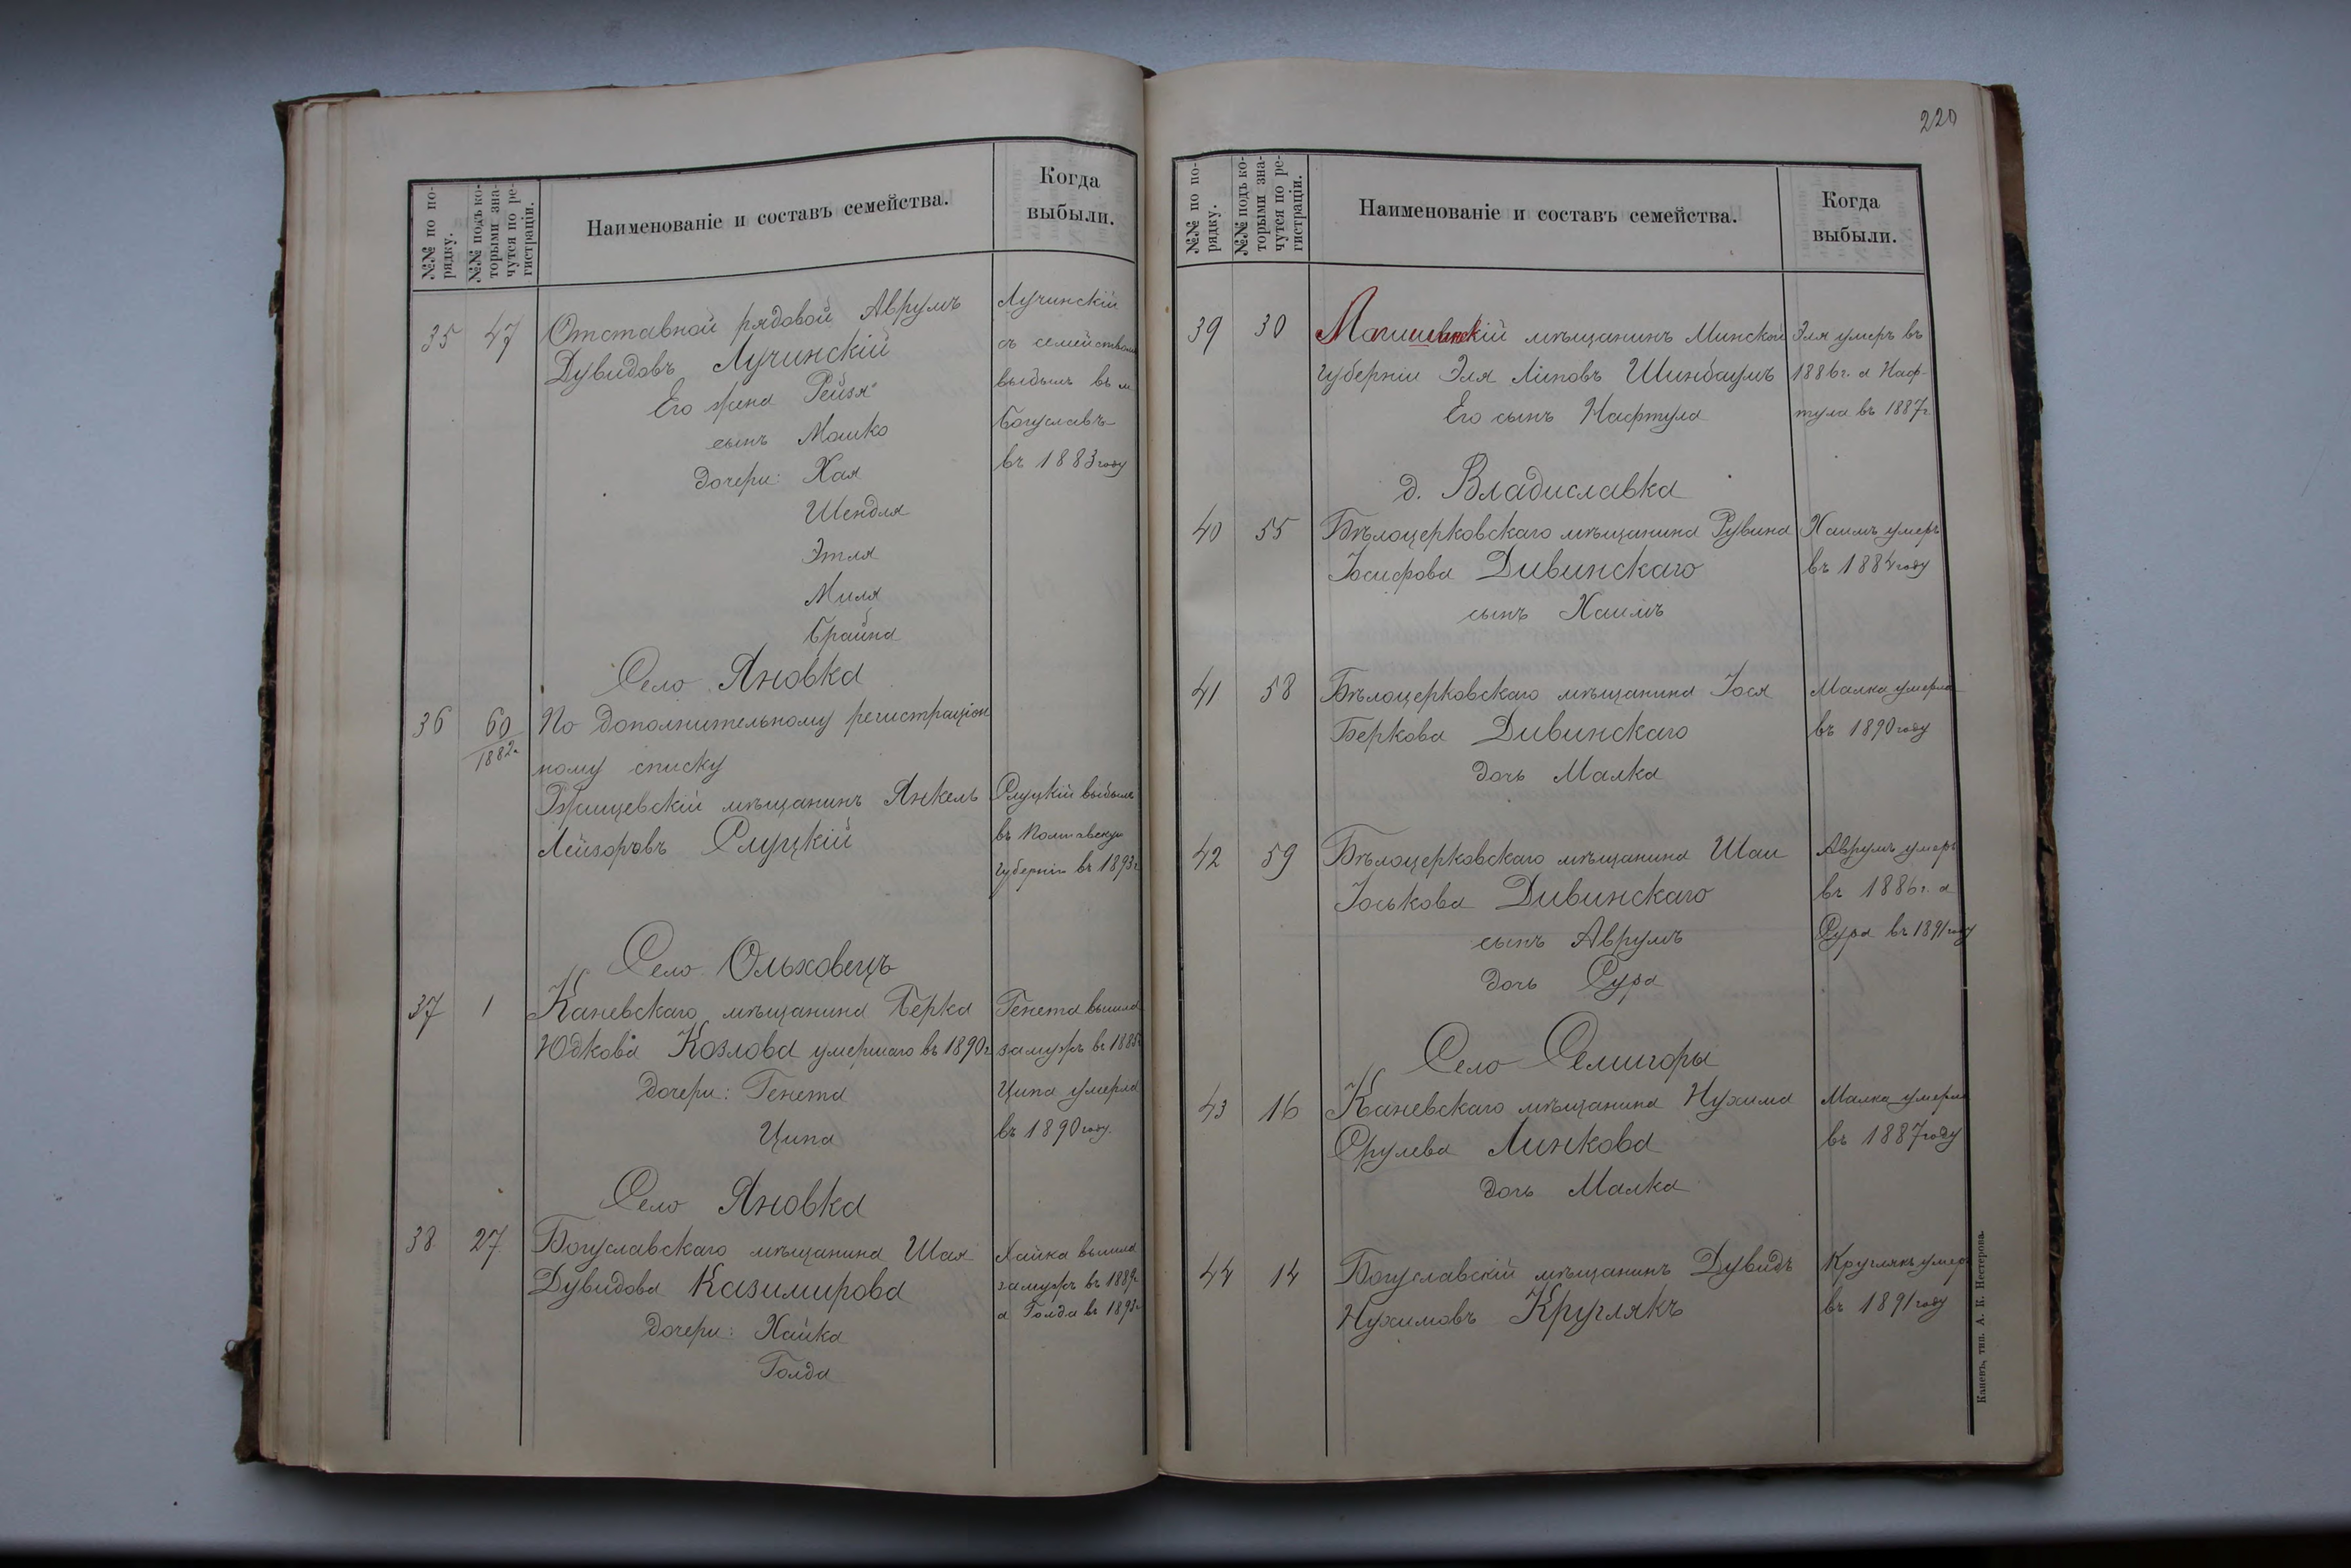 220
№№ по по-
рядку.
№№ подъ ко-
торыми зна-
чутся по ре-
гистраціи.
Наименованіе и составъ семейства.
Когда
выбыли.
35 47 Отставной рядовой Аврумъ
Дувидовъ Лучинскій
Его жена Рейзя
сынъ Мошко
дочери: Хая
Шендля
Этля
Миля
Брайна
Лучинскій
съ семействомъ
выбылъ въ м.
Богуславъ
въ 1883 году
Село Яновка
36 60/1882г. По дополнительному регистраціон
ному списку
Ржищевскій мѣщанинъ Янкель
Лейзоровъ Слуцкій
Слуцкій выбылъ
въ Полтавскую
губернію въ 1893г
Село Ольховецъ
37 1 Каневскаго мѣщанина Берка
Юдкова Козлова умершаго въ 1890г
дочери: Генета
Ципа
Генета вышла
замужъ въ 1885г
Ципа умерла
въ 1890 году.
Село Яновка
38 27 Богуславскаго мѣщанина Шая
Дувидова Казимирова
дочери: Хайка
Голда
Хайка вышла
замужъ въ 1889г
а Голда въ 1893г
№№ по по-
рядку.
№№ подъ ко-
торыми зна-
чутся по ре-
гистраціи.
Наименованіе и составъ семейства.
Когда
выбыли.
39 30 мѣщанинъ Минской
губерніи Эля Липовъ Шинбаумъ
Его сынъ Нафтула
Эля умеръ въ
1886г. а Наф-
тула въ 1887г
д. Владиславка
40 55 Бѣлоцерковскаго мѣщанина Рувина
Іосифова Дивинскаго
сынъ Хаимъ
Хаимъ умеръ
въ 1884 году
41 58 Бѣлоцерковскаго мѣщанина Іося
Беркова Дивинскаго
дочь Малка
Малка умерла
въ 1890 году
42 59 Бѣлоцерковскаго мѣщанина Шаи
Іоськова Дивинскаго
сынъ Аврумъ
дочь Сура
Аврумъ умеръ
въ 1886г. а
Сура въ 1891 году
Село Селигоры
43 16 Каневскаго мѣщанина Нухима
Срулева Линкова
дочь Малка
Малка умерла
въ 1887 году
44 14 Богуславскій мѣщанинъ Дувидъ
Нухимовъ Круглякъ
Круглякъ умеръ
въ 1891 году
Каневъ, тип. А. К. Нестерова.